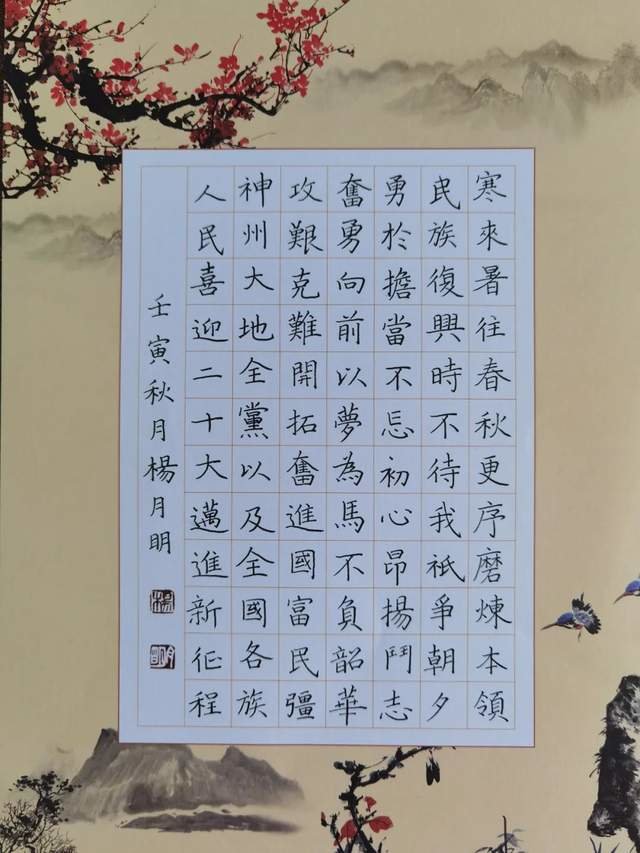 寒來暑往春秋更序磨煉本領
民族復興時不待我祇爭朝夕
勇於擔當不忘初心昂揚鬥志
奮勇向前以夢為馬不負韶華
攻艱克難開拓奮進國富民彊
神州大地全黨以及全國各族
人民喜迎二十大邁進新征程
壬寅秋月楊月明